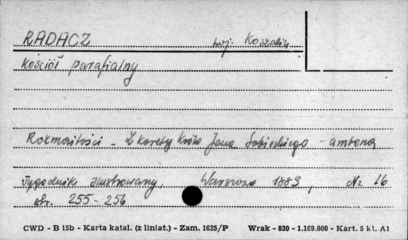 RADACZ woj. Koszalin
Kościół parafialny
Rozmaitości - Z karety Króla Jana Sobieskiego - ambona
Tygodnik Ilustrowany, Warszawa 1883, Nr 16
str. 255-256
CWD - B 15b - Karta katal. (z liniat.) - Zam. 1625/P Wrak - 830 - 1.169.000 - Kart. 5 kl. A1